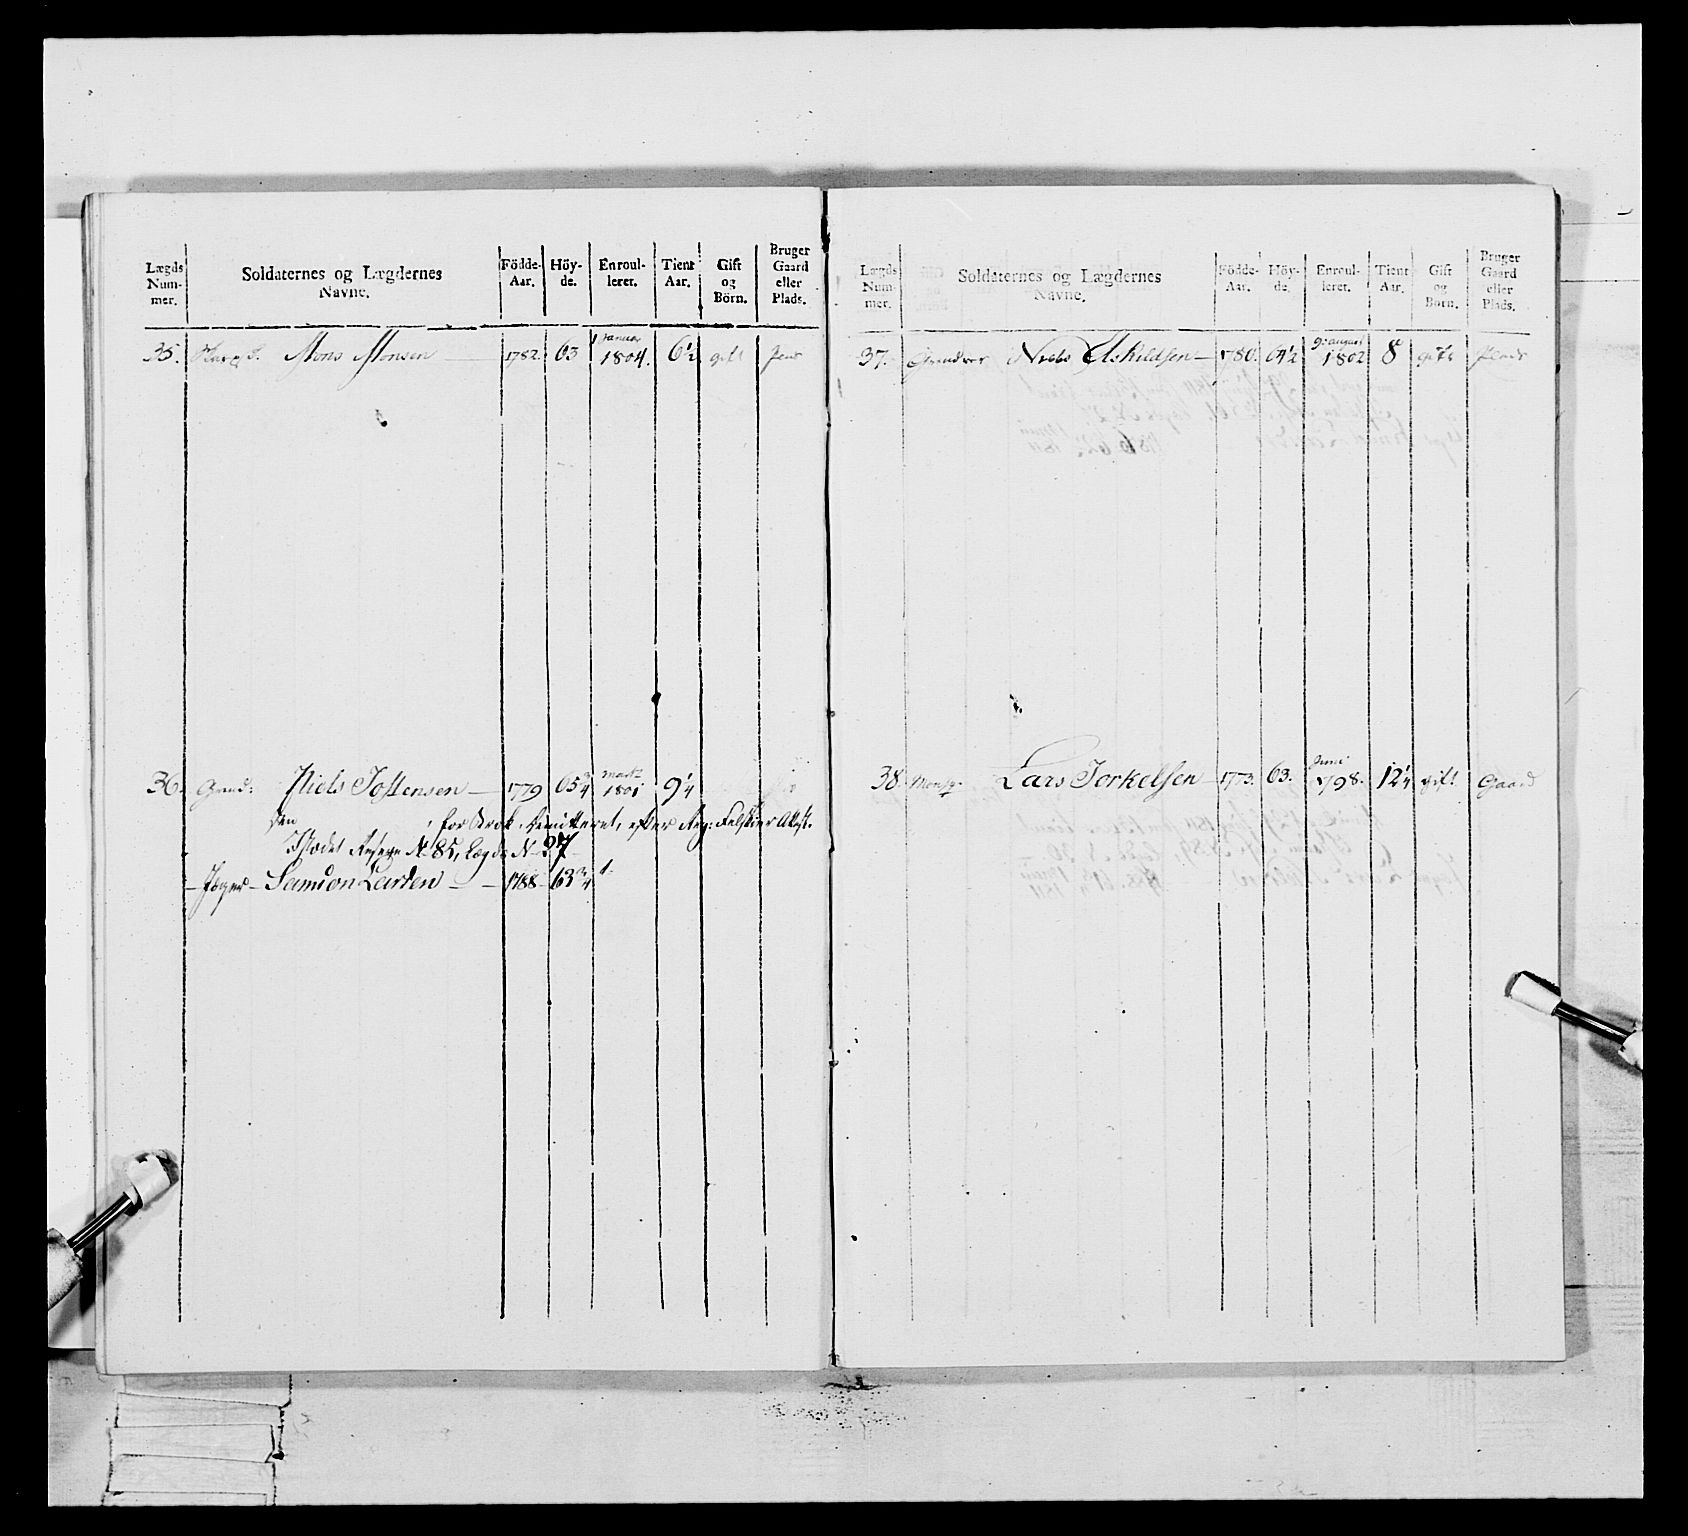 Lægds Num- mer. Soldaternes og Lægdernes Navne. Födde- Aar. Höy- de. Enroul- leret. Tient Aar. Gift og Börn. Bruger Gaard eller Plads.
35. Mons Monsen 1782. 63 1 Januar 1804. 6 1/2 gift
36. Grend: Niels Jostensen 1779 65 3/4 Martz 1801 9 1/4
den for Brok, demitteret, efter Reg: Feltskier Attest.
Istædet Reserve No 85, Lægds No 27
- Jæger - Samson Larsen - - 1788 63 3/4 1
Lægds Num- mer. Soldaternes og Lægdernes Navne. Födde- Aar. Höy- de. Enroul- leret. Tient Aar. Gift og Börn. Bruger Gaard eller Plads.
37. Niels Askildsen - 1780. 64 1/2 9 august 1802 8 gift Plads
38. Lars Torkelsen 1773. 63. Juni 1798. 12 1/4 gift Gaard